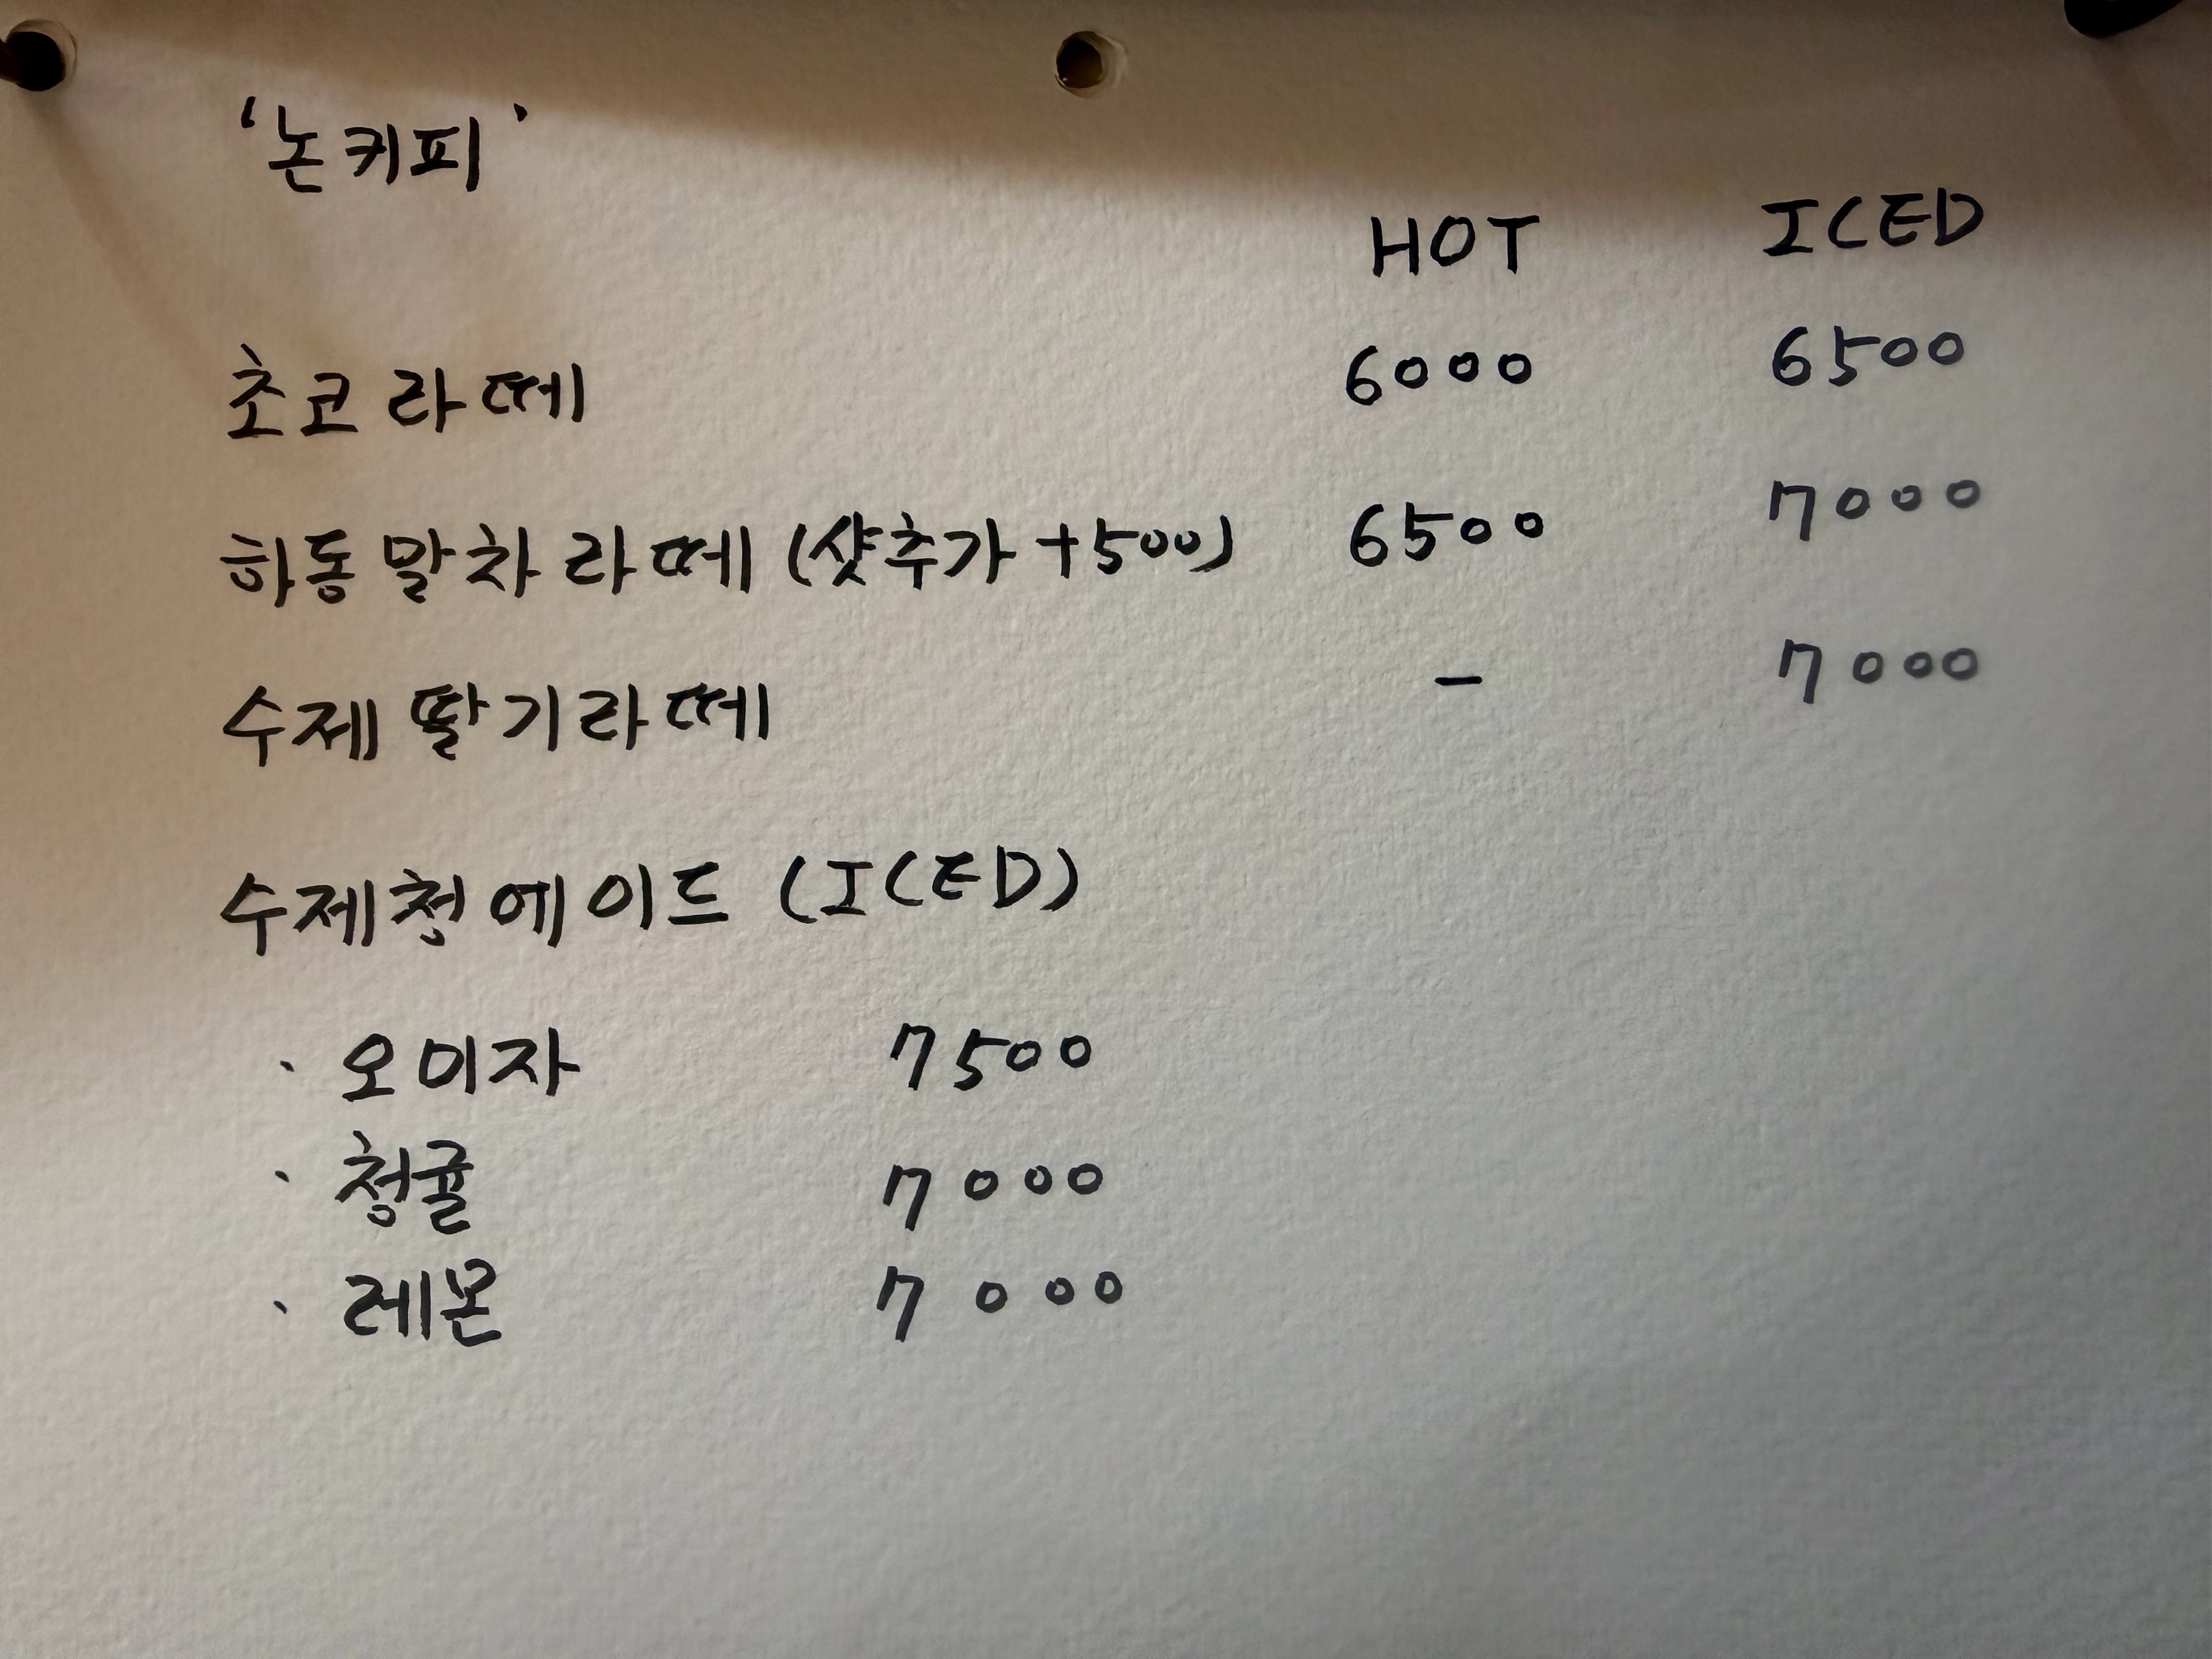 '논커피'
HOT ICED
초코라떼 6000 6500
하동말차라떼 (샷추가 +500) 6500 7000
수제 딸기라떼 - 7000
수제청에이드 (ICED)
· 오미자 7500
· 청귤 7000
· 레몬 7000